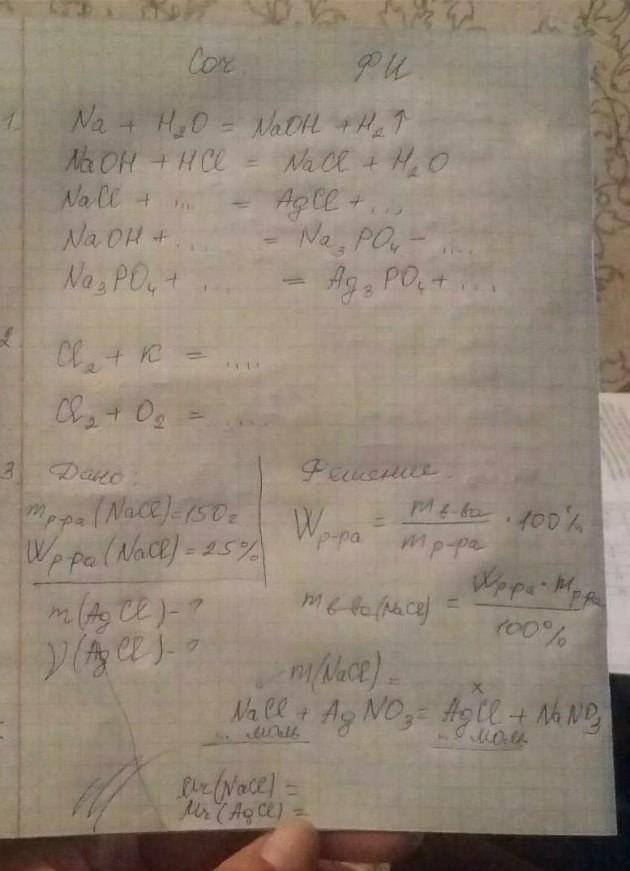 Соч ФИ.
1. Na + H₂O = NaOH + H₂↑
NaOH + HCl = NaCl + H₂O
NaCl + ... = AgCl + ...
NaOH + ... = Na₃PO₄ - ....
Na₃PO₄ + ... = Ag₃PO₄ + ...
2 Cl₂ + K = ....
Cl₂ + O₂ = ....
3 Дано:
mр-ра (NaCl) = 150г
Wр-ра (NaCl) = 25%
m(AgCl) - ?
ν(AgCl) - ?
Решение:
Wр-ра = mв-ва / mр-ра · 100%
mв-ва(NaCl) = Wр-ра · mр-ра / 100%
m(NaCl) =
x
NaCl + AgNO₃ = AgCl + NaNO₃
... моль ... моль
Mr(NaCl) =
Mr(AgCl) =